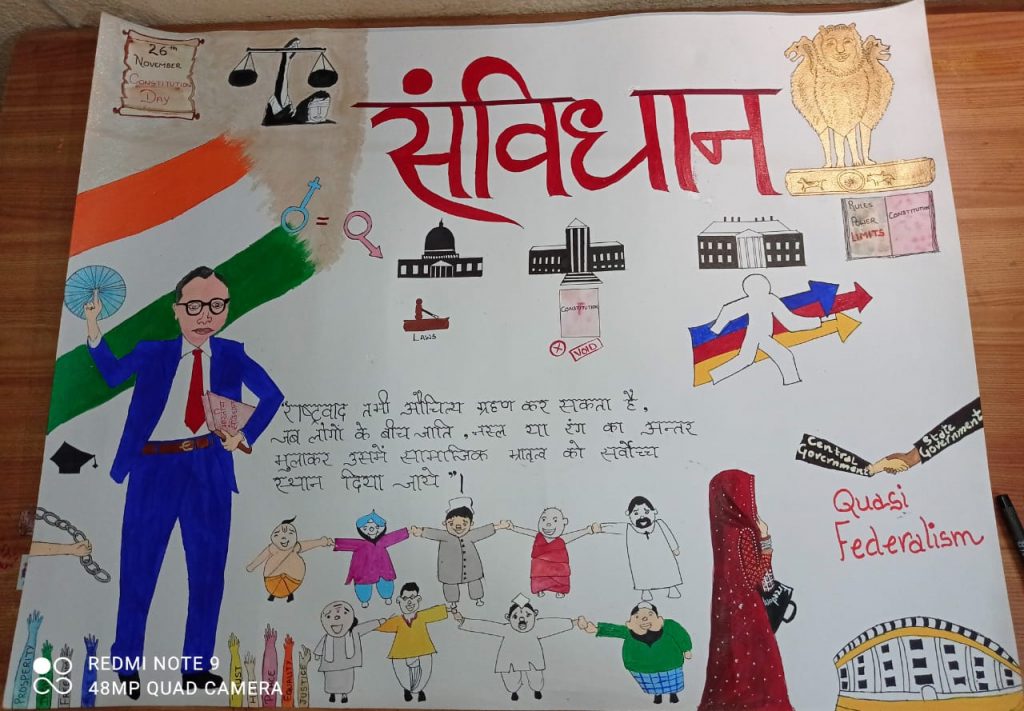 26th
NOVEMBER
CONSTITUTION
DAY
संविधान
RULES
POLICE
LIMITS
CONSTITUTION
LAWS
CONSTITUTION
VOID
"राष्ट्रवाद तभी औचित्य ग्रहण कर सकता है,
जब लोगो के बीच जाति, नस्ल या रंग का अन्तर
भुलाकर उसमें सामाजिक भातृत्व को सर्वोच्च
स्थान दिया जाये"।
Central Government
State Government
Quasi
Federalism
PROSPERITY
EQUALITY
JUSTICE
REDMI NOTE 9
48MP QUAD CAMERA